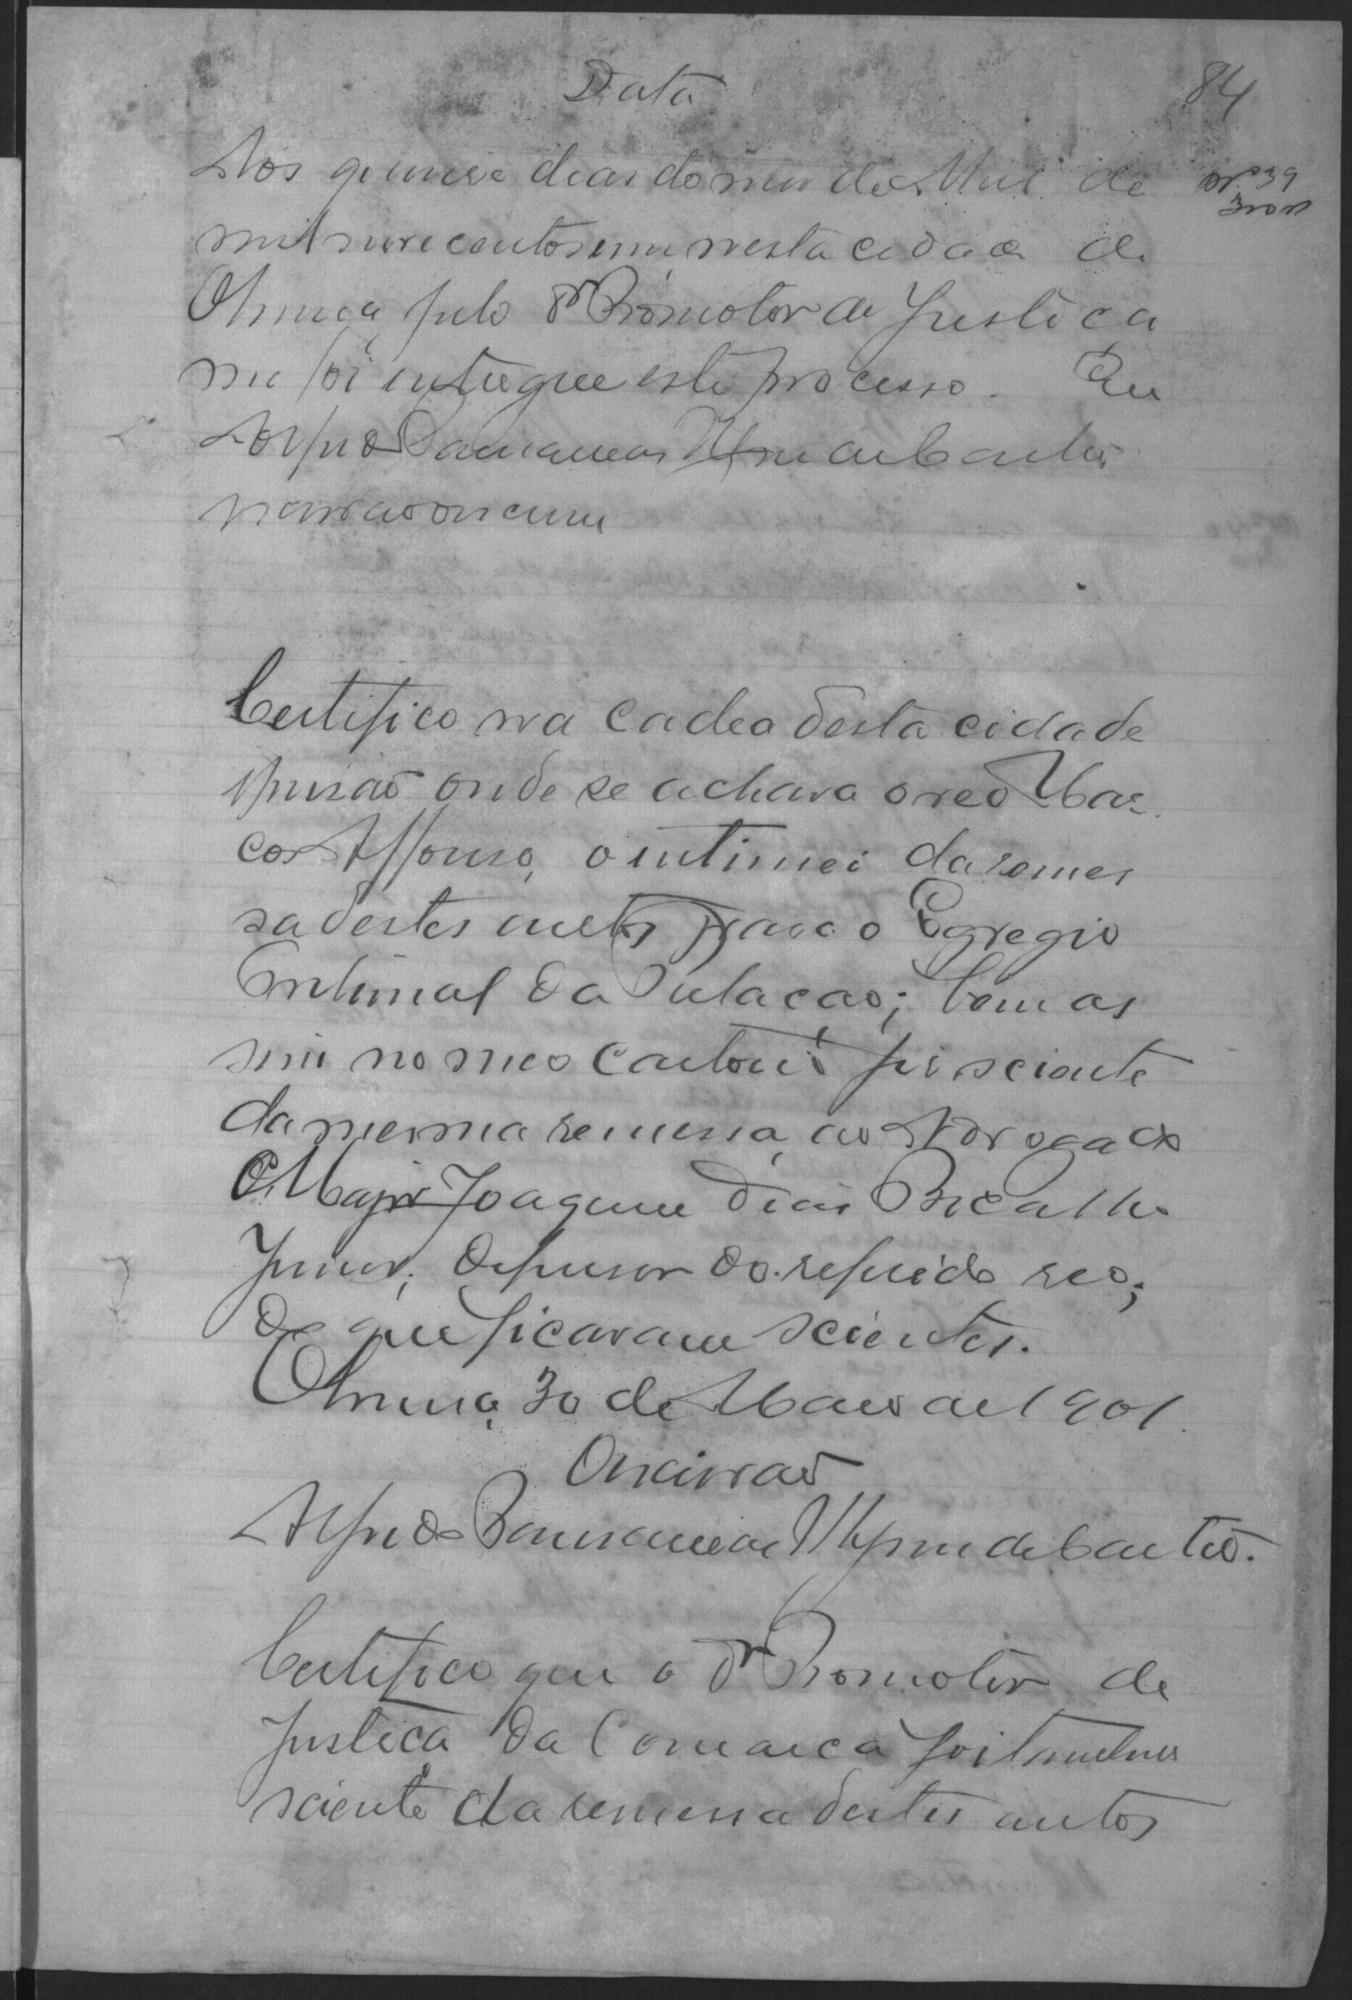 Data
84
Aos quinse dias do mes de Abril de
nº 39
mil nove centos e um nesta cidade de
pelo Dr Promotor de Justiça
me foi entregue este processo. Eu
Alfredo
escrivão escrevi
Certifico na cadea desta cidade
e prisão onde se achava o reo Mar
cos Affonso, o intimei da remes
sa destes autos para o Egregio
Tribunal da Relação; bem as
sim no meo Cartorio fis sciente
da mesma remessa, ao Advogado
Major Joaquim Dias Bicalho
Junior, defensor do referido reo;
do que ficaram scientes.
30 de Maio de 1901.
O escrivão
Alfredo
Certifico que o Dr Promotor de
Justiça da Comarca foi tambem
sciente da remessa destes autos